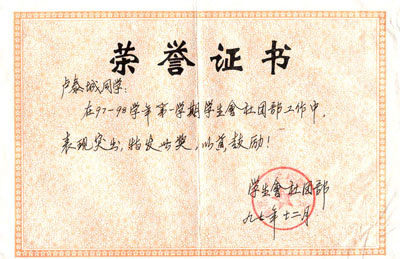 荣誉证书
卢泰城同学：
在97-98学年第一学期学生會社团部工作中，
表现突出，特发此奖，以兹鼓励！
学生會社团部
九七年十二月